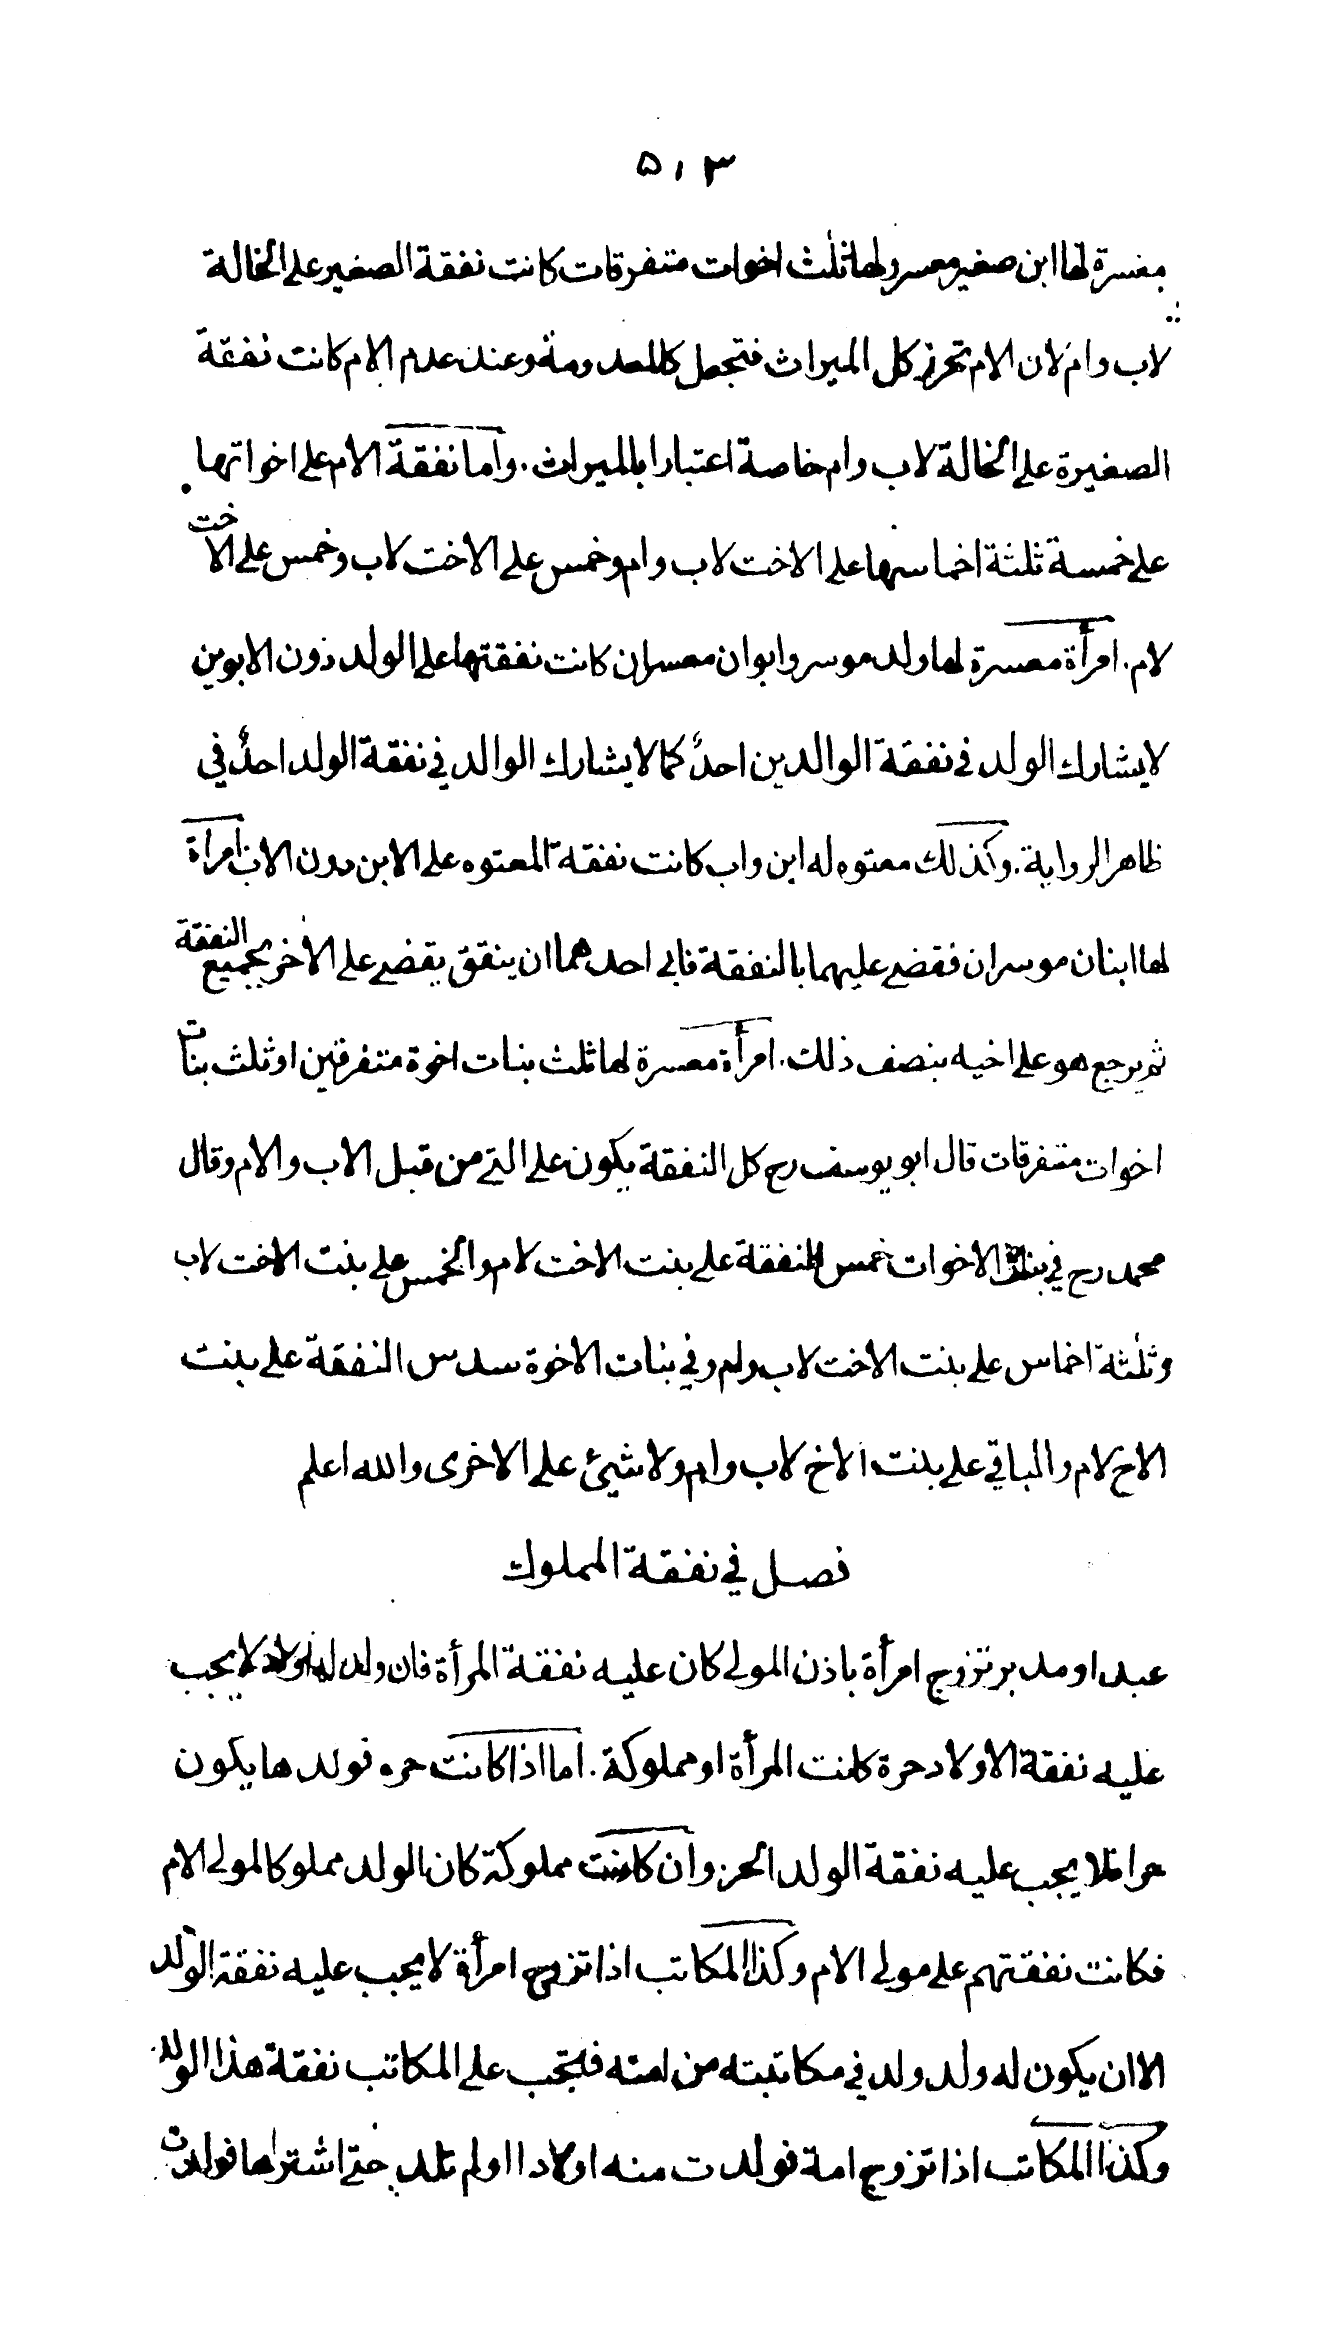 ٥١٣
معسرة لها ابن صغير معسر ولها ثلث اخوات متفرقات كانت نفقة الصغير على الخالة
لاب وام لان الام تحرز كل الميراث فتجعل كالمعدومة وعند عدم الام كانت نفقة
الصغيرة على الخالة لاب وام خاصة اعتبارا بالميراث. واما نفقة الام على اخواتها
على خمسة ثلثة اخماسها على الاخت لاب وام وخمس على الاخت لاب وخمس على الاخت
لام. امرأة معسرة لها ولد موسر وابوان معسران كانت نفقتها على الولد دون الابوين
لا يشارك الولد في نفقة الوالدين احدٌ كما لا يشارك الوالد في نفقة الولد احدٌ في
ظاهر الرواية. وكذلك معتوه له ابن واب كانت نفقة المعتوه على الابن دون الاب امرأة
لها ابنان موسران فقضى عليهما بالنفقة فابى احدهما ان ينفق يقضى على الآخر بجميع النفقة
ثم يرجع هو على اخيه بنصف ذلك. امرأة معسرة لها ثلث بنات اخوة متفرقين او ثلث بنات
اخوات متفرقات قال ابو يوسف رح كل النفقة يكون على التي من قبل الاب والام وقال
محمد رح في بنات الاخوات خمس النفقة على بنت الاخت لام والخمس على بنت الاخت لاب
وثلثة اخماس على بنت الاخت لاب وام وفي بنات الاخوة سدس النفقة على بنت
الاخ لام والباقي على بنت الاخ لاب وام ولا شيئ على الاخرى والله اعلم
فصل في نفقة المملوك
عبد او مدبر تزوج امرأة باذن المولى كان عليه نفقة المرأة فان ولد لها اولاد لا يجب
عليه نفقة الاولاد حرة كانت المرأة او مملوكة. اما اذا كانت حره فولدها يكون
حرا فلا يجب عليه نفقة الولد الحر وان كانت مملوكة كان الولد مملوكا لمولى الام
فكانت نفقتهم على مولى الام وكذا المكاتب اذا تزوج امرأة لا يجب عليه نفقة الولد
الا ان يكون له ولد ولد في مكاتبته من امته فيجب على المكاتب نفقة هذا الولد
وكذا المكاتب اذا تزوج امة فولدت منه اولادا اولم تلد حتى اشتراها فولدت